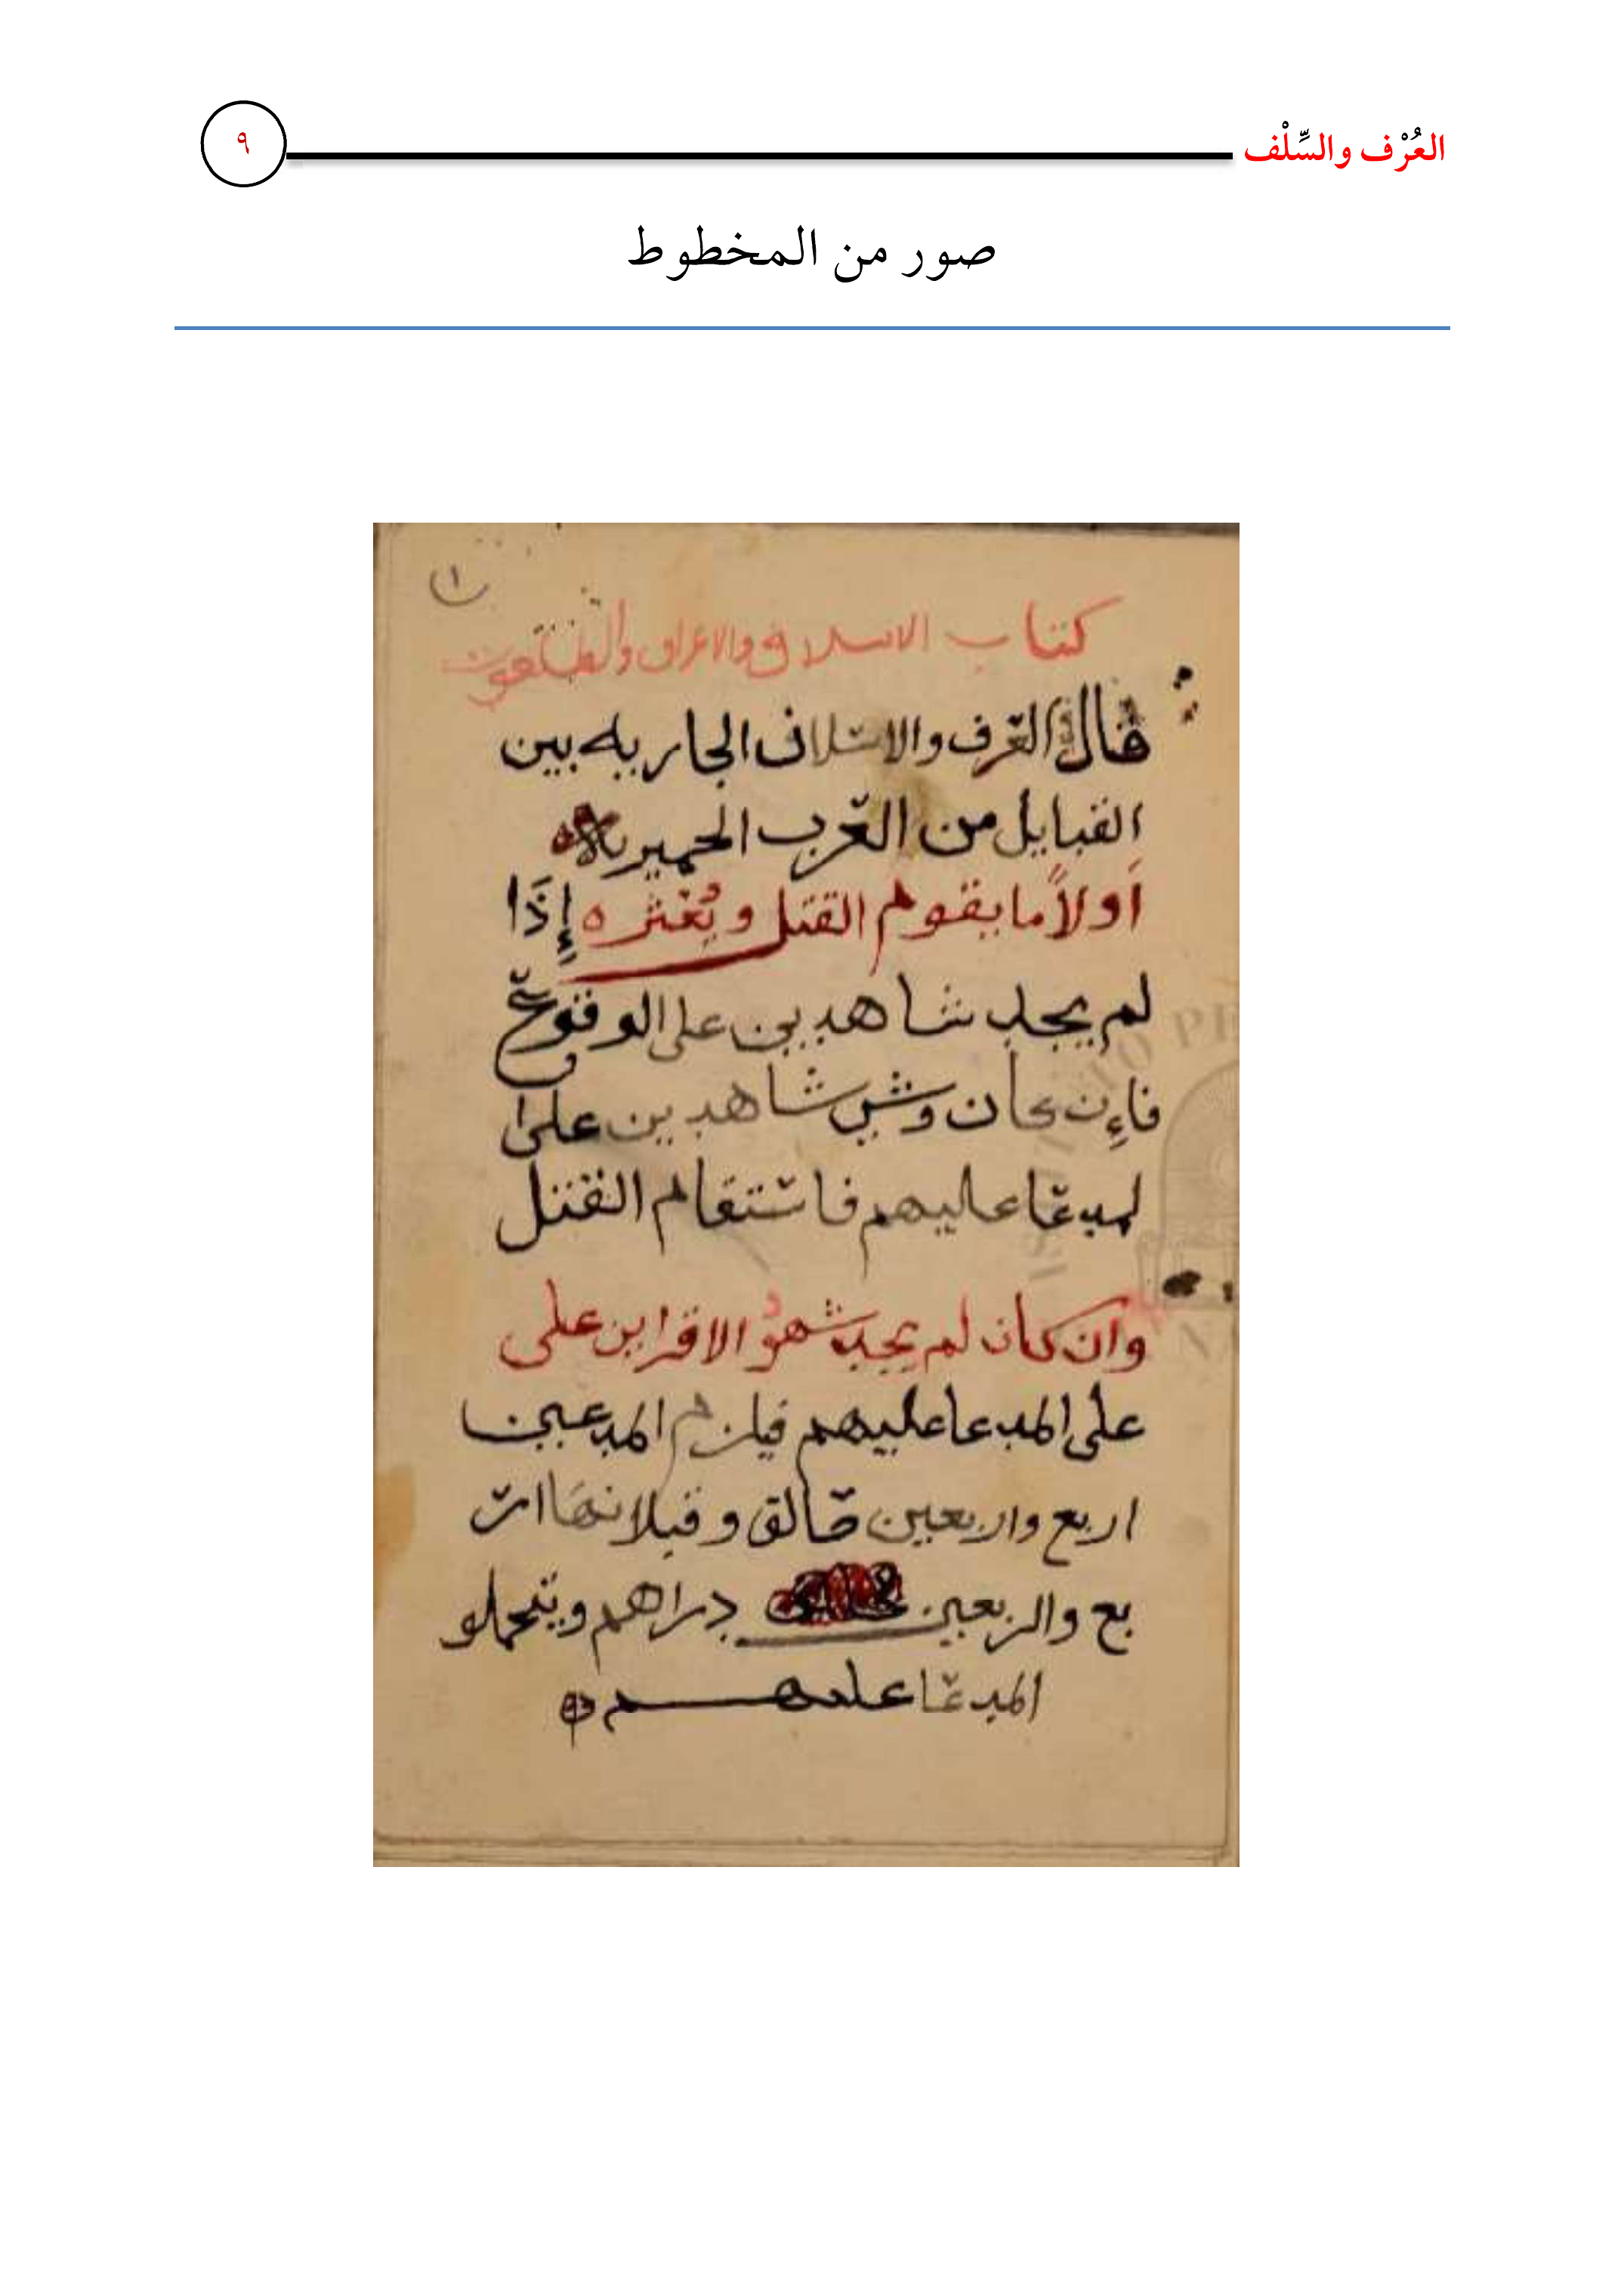 العُرْف والسِّلْف
٩
صور من المخطوط
١
كتاب الاسلاف والاعراف
قال العرف والاسلاف الجاريه بين
القبايل من العرب الحميريه
أولاً ما يقوم القتل و إِذَا
لم يجد شاهدين على الوقوع
فاءِن كان وش شاهدين على ا
لمدعا عليهم فاستقام القتل
وان كان لم يجد شهو الاقراين على
على المدعا عليهم فيلزم المدعين
اربع واربعين طالق وقبلانها ار
بع والربعين دراهم ويتحملو
المدعا عليهم